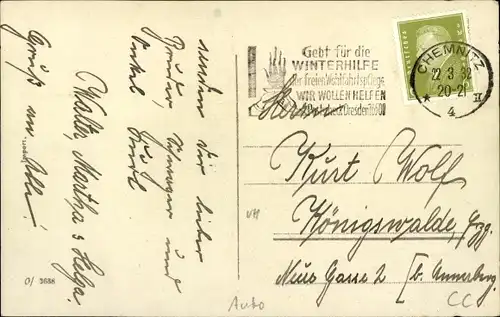 senden Dir lieber
Bruder, Schwager und
Onkel
Walter, Martha & Helga.
Gruß an Alle!
O/ 3688
Gebt für die
WINTERHILFE
der freien Wohlfahrtspflege
WIR WOLLEN HELFEN
Postscheck Dresden
CHEMNITZ
22.3.32
20-21
* II
4
Herrn
Kurt Wolf
Königswalde, Erzg.
Neue Gasse 2 [b. Annaberg.
Auto
CC